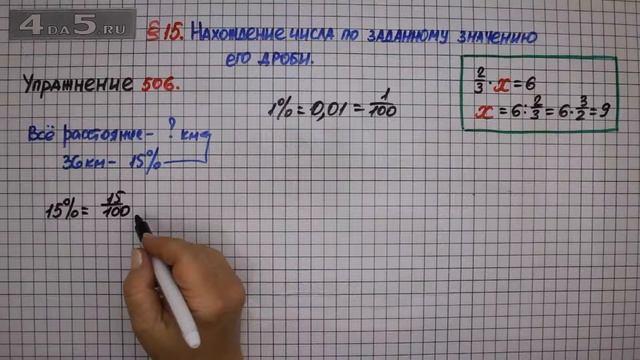 4DA5.RU
§15. Нахождение числа по заданному значению
его дроби.
Упражнение 506.
1%=0,01=1/100
2/3·x=6
x=6:2/3=6·3/2=9
Всё расстояние- ? км
36км- 15%
15%= 15/100